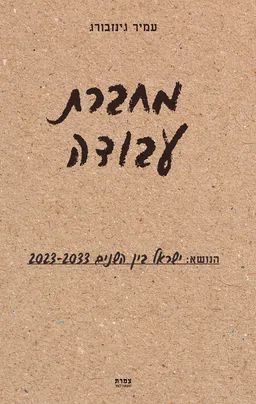 עמיר גינזבורג
מחברת
עבודה
הנושא: ישראל בין השנים 2023-2033
צמרת